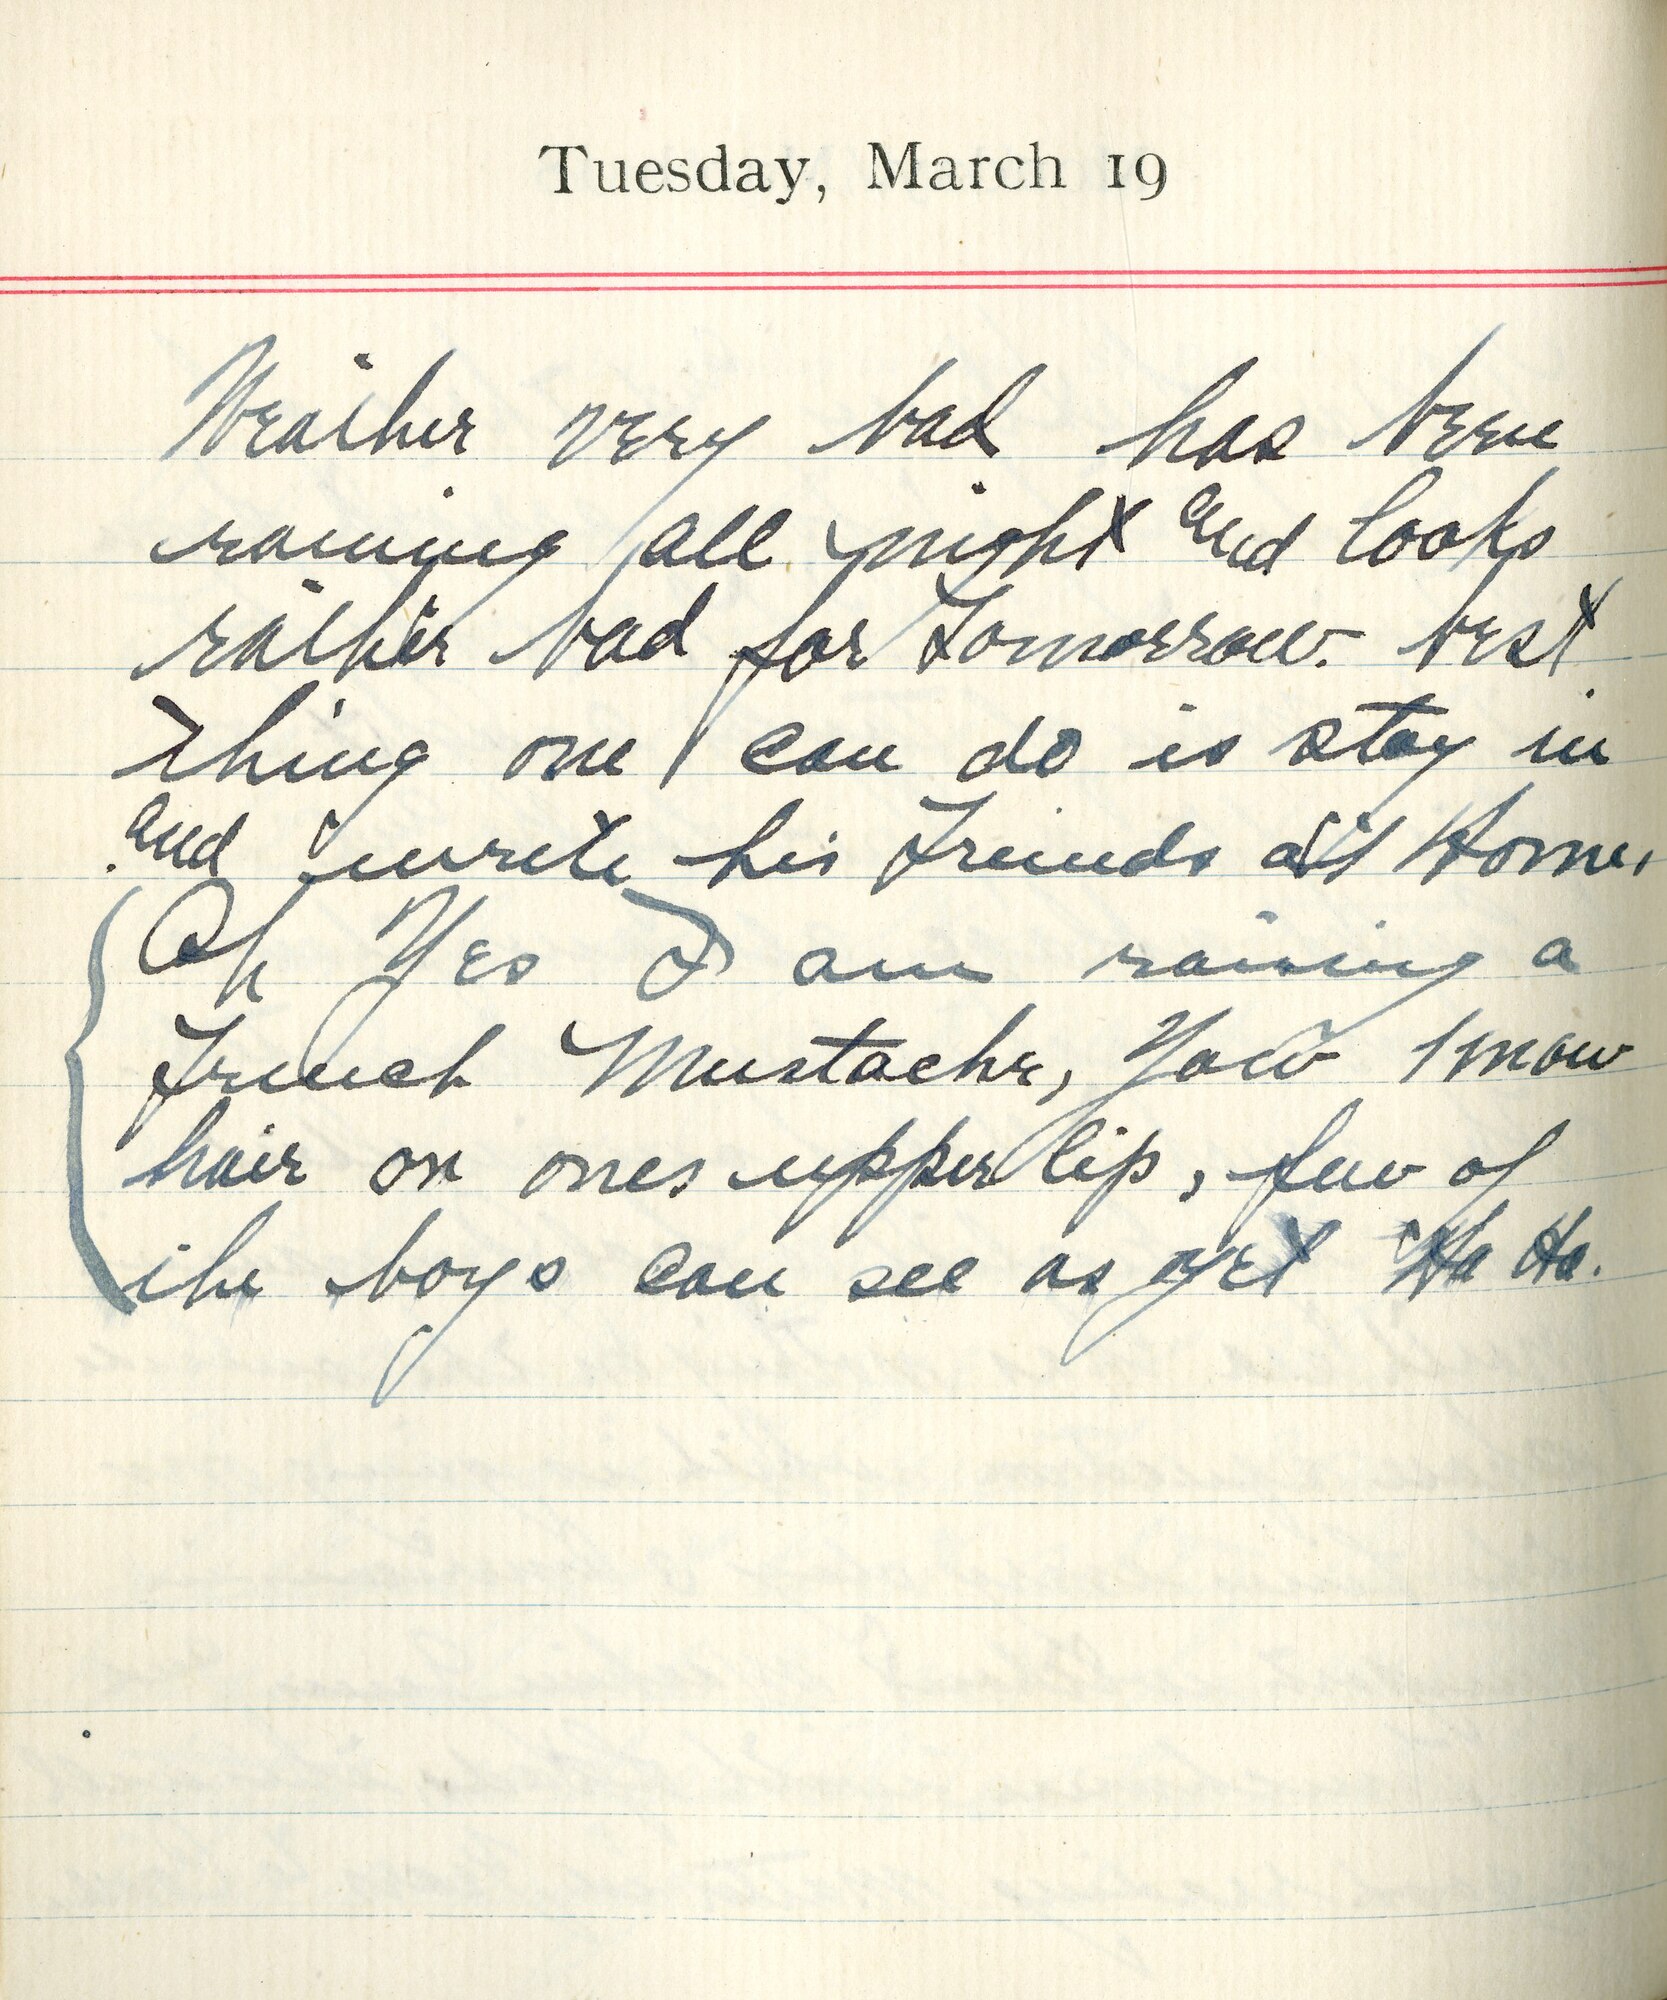 Tuesday, March 19
Weather very bad has been
raining all night and looks
rather bad for Tomorrow. best
Thing one can do is stay in
and write his Freinds at Home.
Oh Yes I am raising a
French Mustache, You know
hair on ones upper lip, few of
the boys can see as yet Ha Ha.